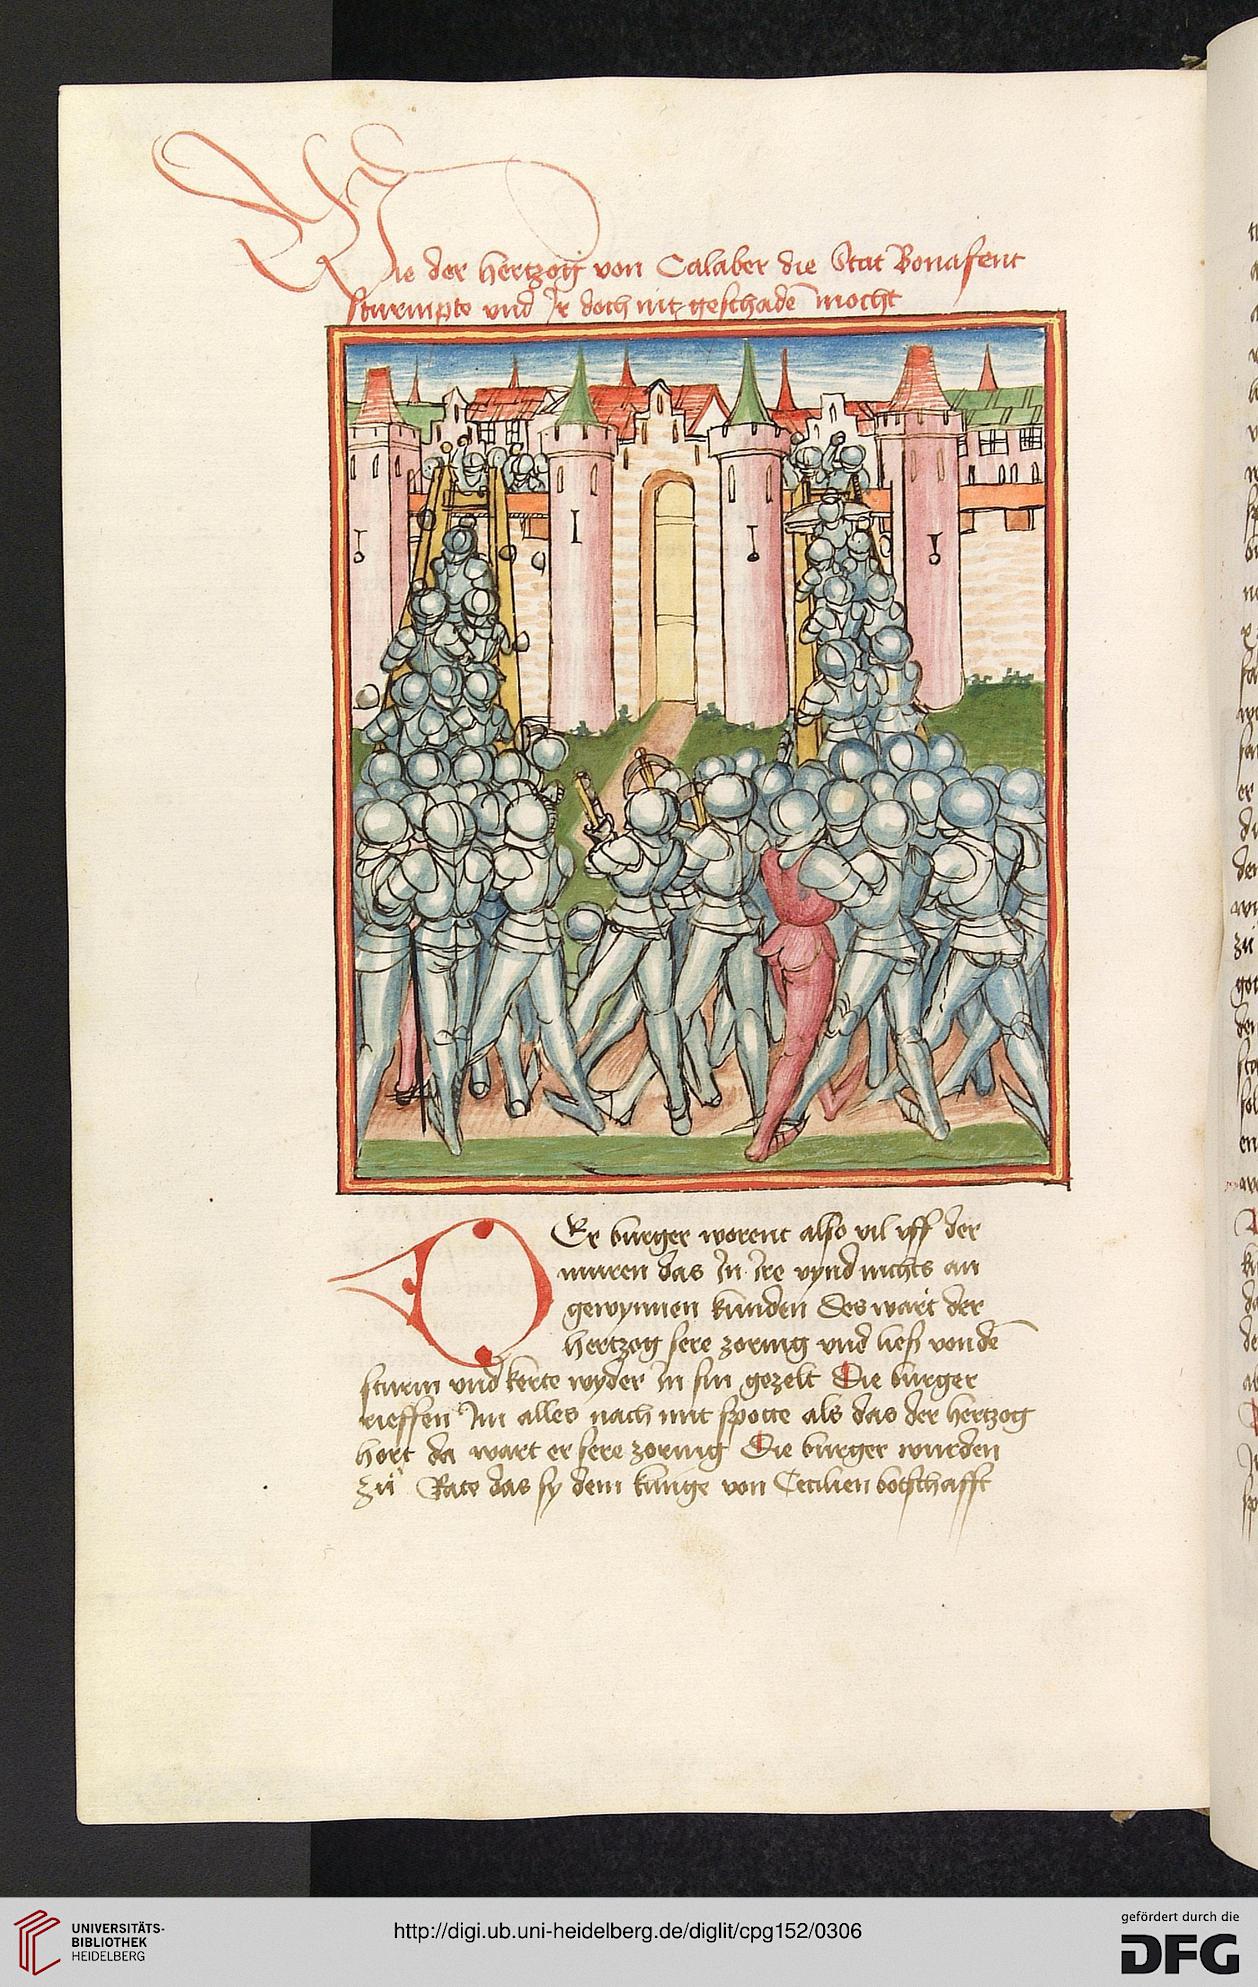 Wie der hertzog von Calaber die Stat Bonafent
sturmpte vnd Ir doch nit geschadē mocht
DEr burger worent also vil vff der
muren das In Ire vynd nichts an
gewynnen kunden Des wart der
hertzog sere zornig vnd ließ von dē
sturm vnd kerte wyder In sin gezelt Die burger
rieffen Im alles nach mit spotte als das der hertzog
hort da wart er sere zornig Die burger wurden
zů Rate das sy dem kunige von Cecilien botschafft
UNIVERSITÄTS-
BIBLIOTHEK
HEIDELBERG
http://digi.ub.uni-heidelberg.de/diglit/cpg152/0306
gefördert durch die
DFG